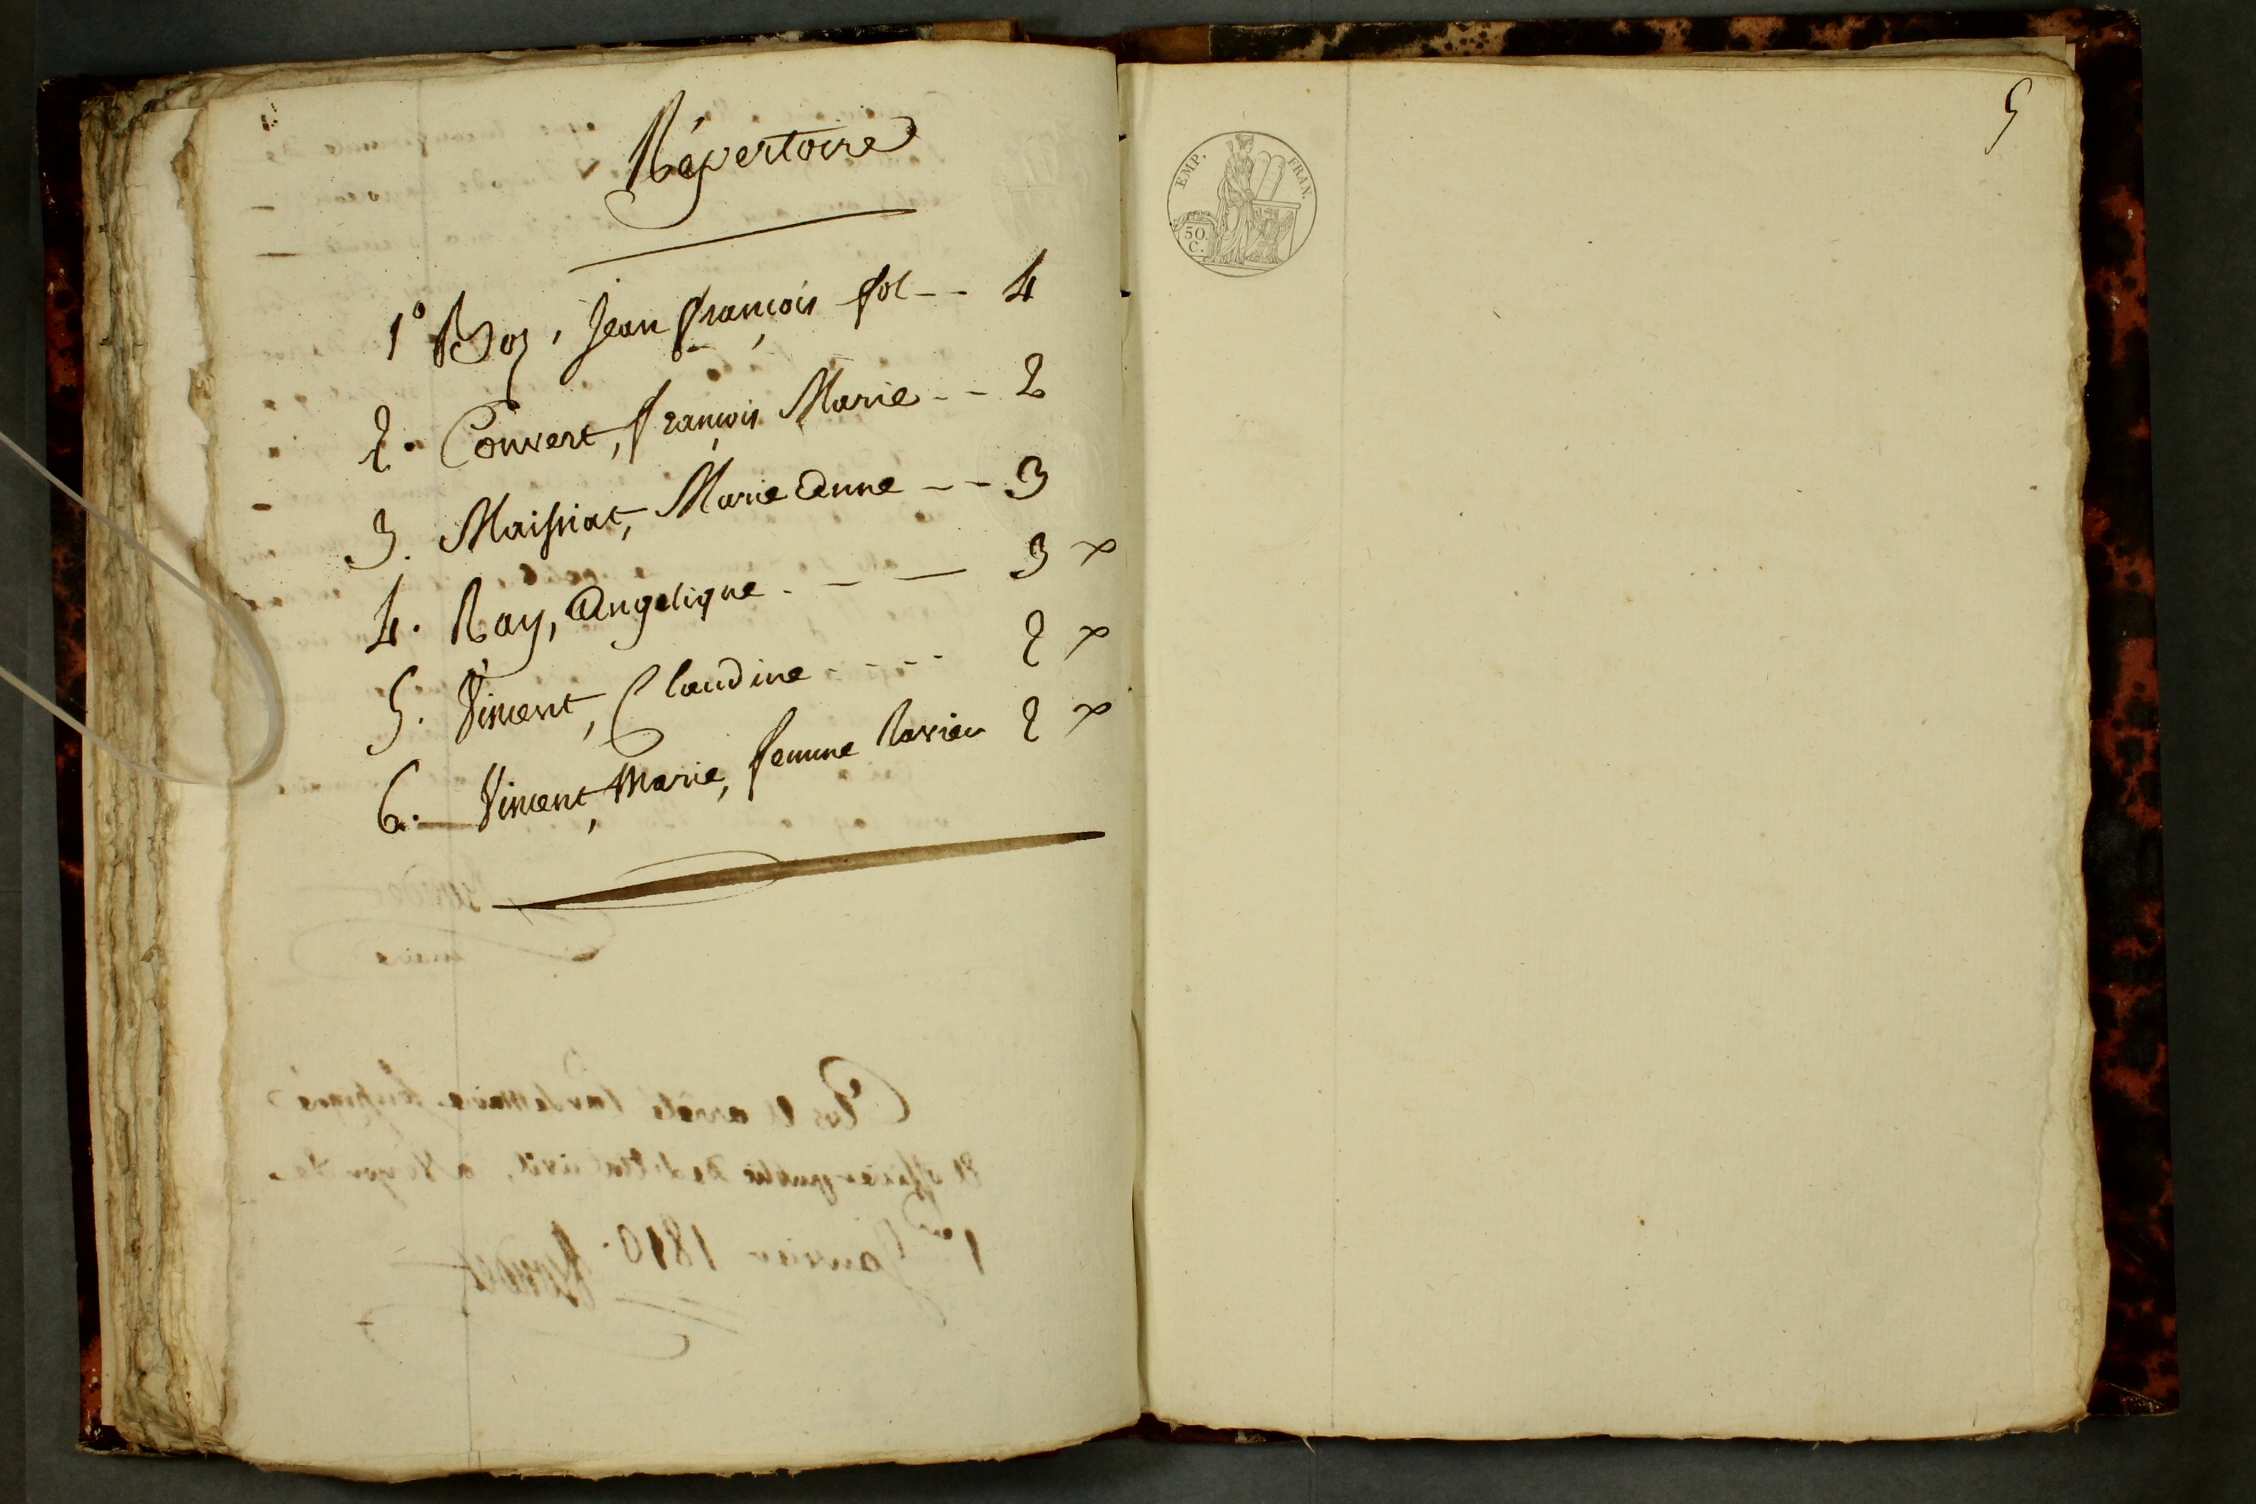 Répertoire
1° Boz, Jean françois fol -- 4
2. Convert, françois Marie -- 2
3. Maissiat, Marie Anne -- 3
4. Ray, Angelique - - - 3 x
5. Vincent, Claudine - - - - 2 x
6. Vincent, Marie, femme Ravier 2 x
5
EMP. FRAN.
50
C.